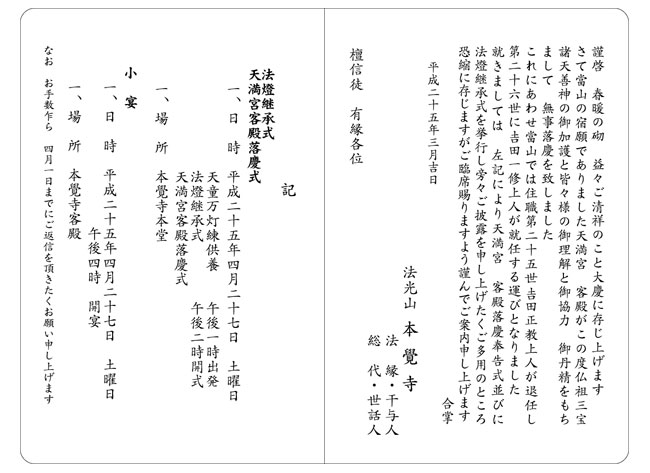 謹啓　春暖の砌　益々ご清祥のこと大慶に存じ上げます
さて當山の宿願でありました天満宮　客殿がこの度仏祖三宝
諸天善神の御加護と皆々様の御理解と御協力　御丹精をもち
まして　無事落慶を致しました
これにあわせ當山では住職第二十五世吉田正教上人が退任し
第二十六世に吉田一修上人が就任する運びとなりました
就きましては　左記により天満宮　客殿落慶奉告式並びに
法燈継承式を挙行し旁々ご披露を申し上げたくご多用のところ
恐縮に存じますがご臨席賜りますよう謹んでご案内申し上げます
合掌
平成二十五年三月吉日
法光山　本覺寺
法　縁・干与人
総　代・世話人
檀信徒　有縁各位
記
法燈継承式
天満宮客殿落慶式
一、日　時　平成二十五年四月二十七日　土曜日
天童万灯練供養　午後一時出発
法燈継承式　午後二時開式
天満宮客殿落慶式
一、場　所　本覺寺本堂
小　宴
一、日　時　平成二十五年四月二十七日　土曜日
午後四時　開宴
一、場　所　本覺寺客殿
なお　お手数乍ら　四月一日までにご返信を頂きたくお願い申し上げます